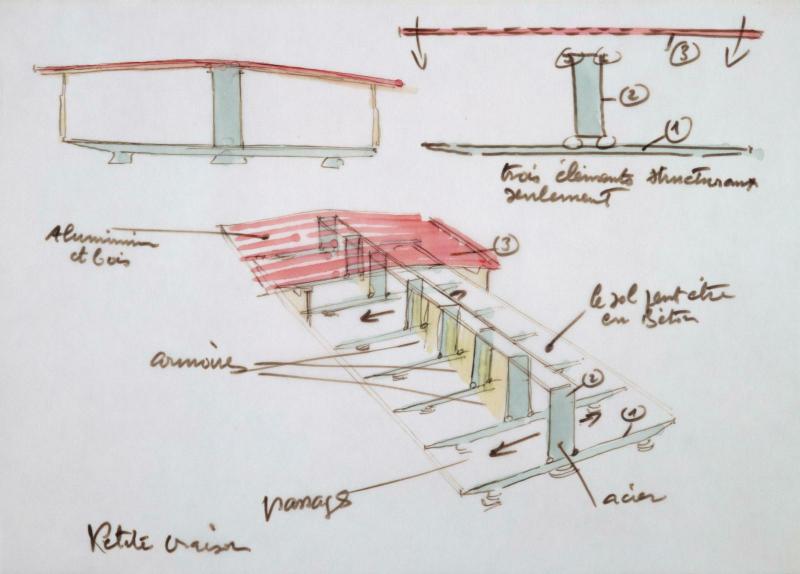 3
2
1
trois éléments structuraux
seulement
Aluminium
et bois
3
le sol peut être
en Béton
armoires
2
1
passage
acier
Petite maison